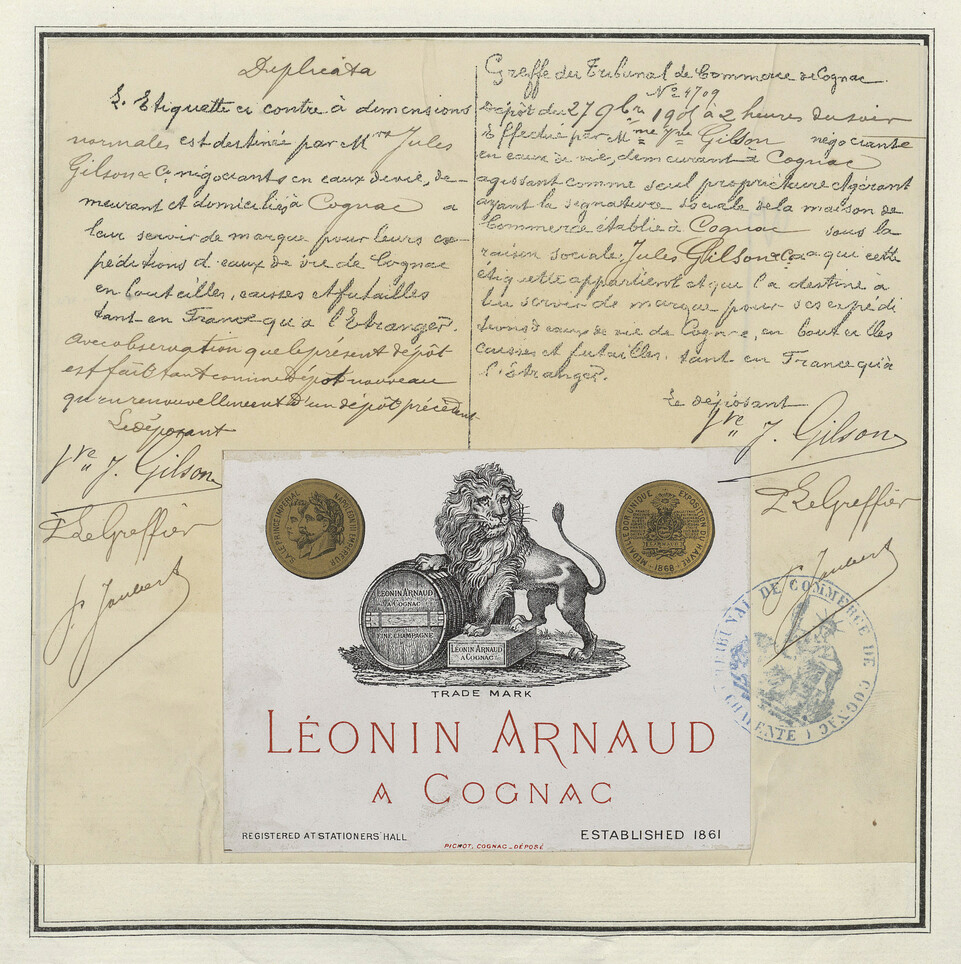 Duplicata
L'Etiquette ci contre à dimensions
normales est destinée par Mrs Jules
Gilson & Co négociants en eaux de vie, de-
meurant et domiciliés à Cognac a
leur servir de marque pour leurs ex-
péditions d'eaux de vie de Cognac
en bouteilles, caisses et futailles
tant en France qu'a l'Etranger.
Avec observation que le présent dépôt
est fait tant comme Dépôt nouveau
qu'en renouvellement d'un dépôt précédent
Le déposant
Vve J. Gilson
P. Le Greffier
Greffe du Tribunal de Commerce de Cognac
No 4709
Dépôt du 27 9bre à 2 heures du soir
Effectué par Mme Vve Gilson négociante
en eaux de vie, demeurant à Cognac
agissant comme seul propriétaire et gérant
ayant la signature sociale de la maison de
Commerce établie à Cognac sous la
raison sociale: Jules Gilson & Co a qui cette
étiquette appartient et que l'a destine à
lui servir de marque pour ses expédi
tions d'eaux de vie de Cognac, en bouteilles
caisses et futailles, tant en France qu'à
l'étranger.
Le déposant
Vve J. Gilson
P. Le Greffier
S.A. LE PRINCE IMPERIAL NAPOLEON III EMPEREUR
MEDAILLE D'OR UNIQUE EXPOSITION DU HAVRE
1868
LÉONIN ARNAUD
A COGNAC
FINE CHAMPAGNE
LÉONIN ARNAUD
A COGNAC
TRADE MARK
LÉONIN ARNAUD
A COGNAC
REGISTERED AT STATIONERS' HALL
ESTABLISHED 1861
PICHOT, COGNAC _ DÉPOSÉ
TRIBUNAL DE COMMERCE DE COGNAC
(CHARENTE)